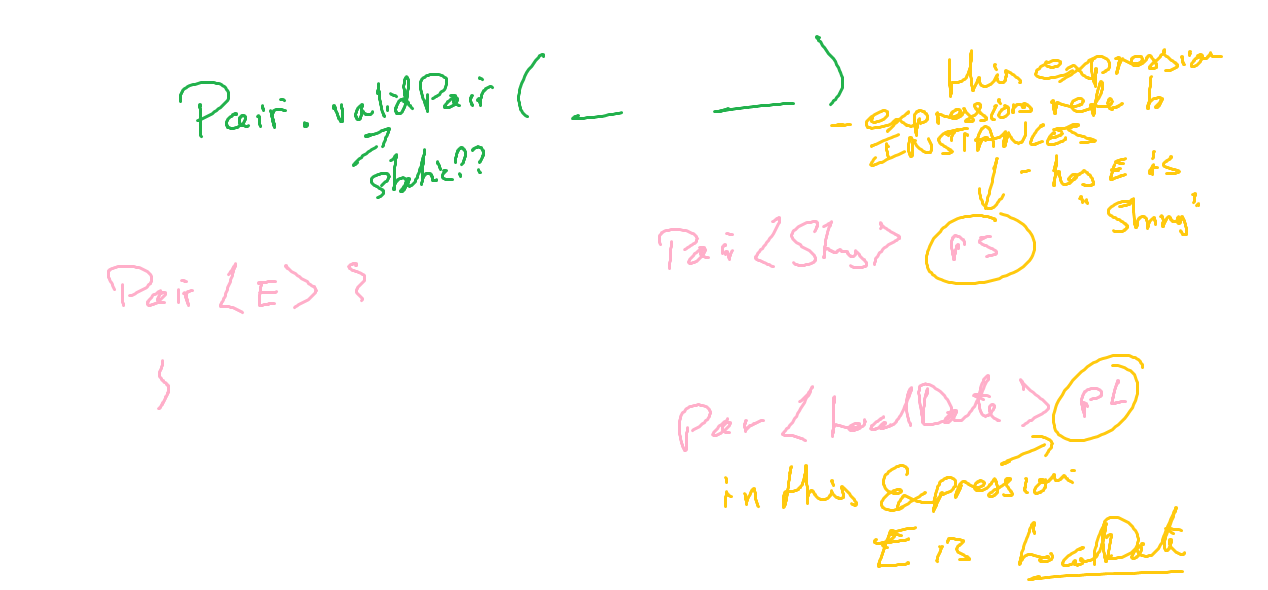 Pair. validPair ( _ _ )
static??
this expression
- expressions refer to
INSTANCES
- has E is
"String".
Pair <String> ps
Pair <E> {
}
Pair <LocalDate> pL
in this Expression
E is LocalDate